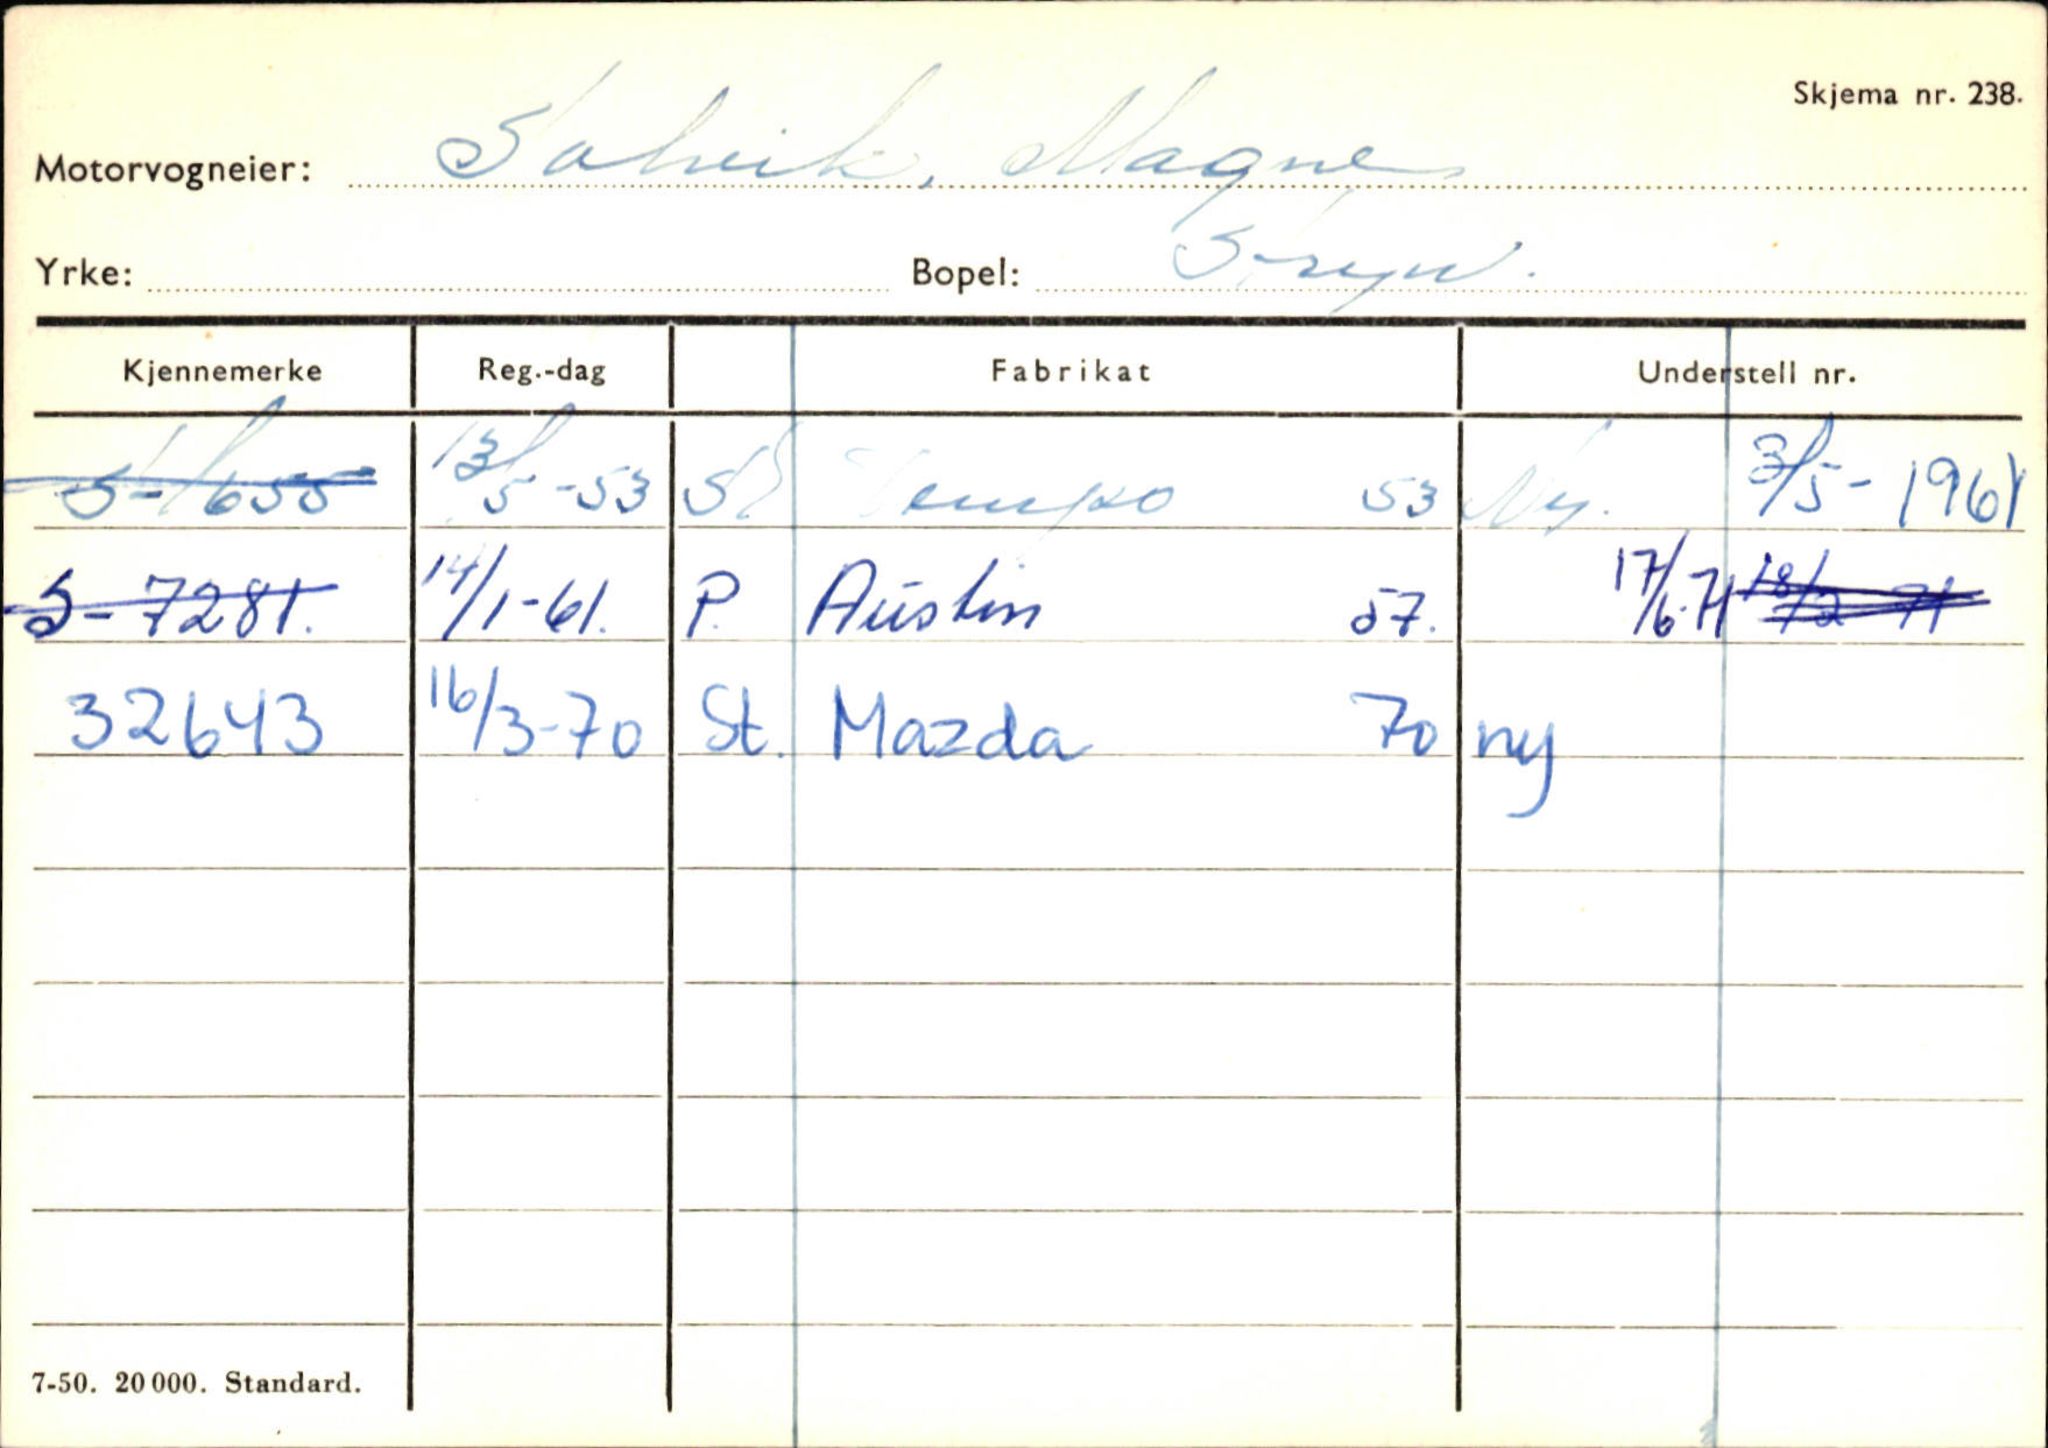 Skjema nr. 238.
Motorvogneier: Solvik, Magne
Yrke: Bopel: Stryn.
Kjennemerke Reg.-dag Fabrikat Understell nr.
S-1655 13/5-53 St Tempo 53 Ny. 3/5-1961
S-7281. 14/1-61. P. Austin 57. 17/6-71 18/2 71
32643 16/3-70 St. Mazda 70 ny
7-50. 20 000. Standard.